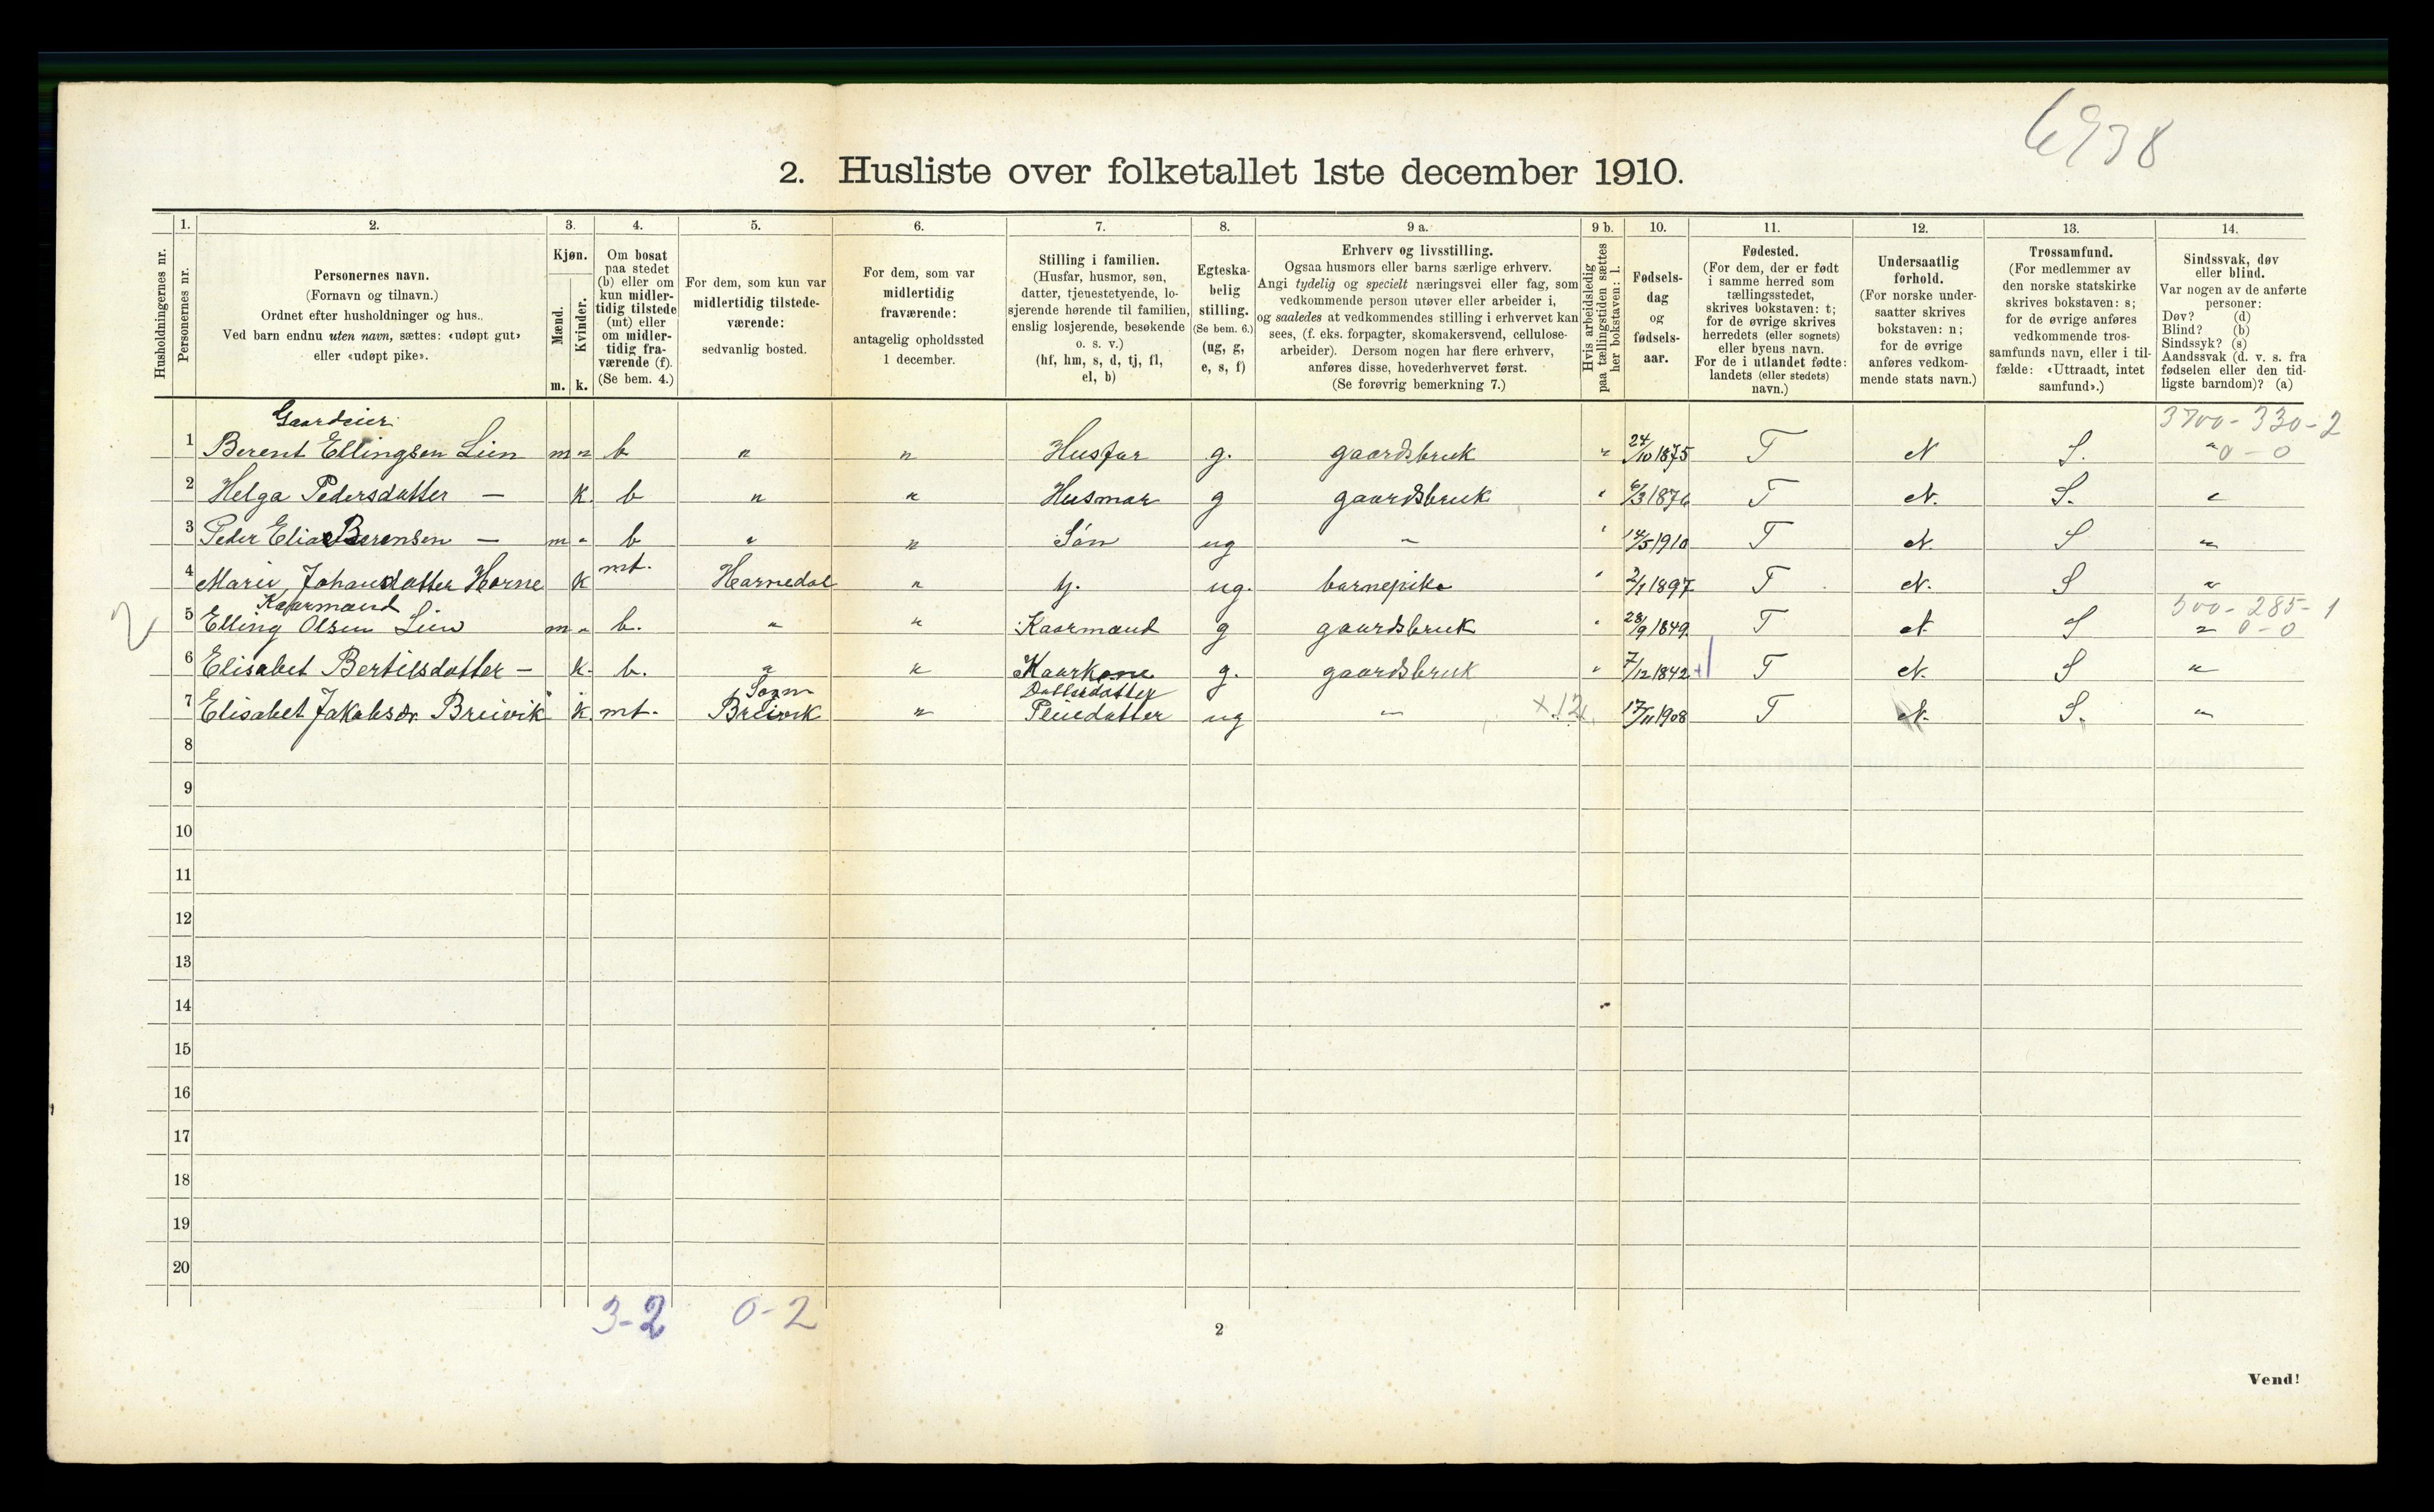 6938
2. Husliste over folketallet 1ste december 1910.
Husholdningernes nr.
1.
Personernes nr.
2.
Personernes navn.
(Fornavn og tilnavn.)
Ordnet efter husholdninger og hus.
Ved barn endnu uten navn, sættes: «udøpt gut»
eller «udøpt pike».
3.
Kjøn.
Mænd.
Kvinder.
m. k.
4.
Om bosat
paa stedet
(b) eller om
kun midler-
tidig tilstede
(mt) eller
om midler-
tidig fra-
værende (f).
(Se bem. 4.)
5.
For dem, som kun var
midlertidig tilstede-
værende:
sedvanlig bosted.
6.
For dem, som var
midlertidig
fraværende:
antagelig opholdssted
1 december.
7.
Stilling i familien.
(Husfar, husmor, søn,
datter, tjenestetyende, lo-
sjerende hørende til familien,
enslig losjerende, besøkende
o. s. v.)
(hf, hm, s, d, tj, fl,
el, b)
8.
Egteska-
belig
stilling.
(Se bem. 6.)
(ug, g,
e, s, f)
9 a.
Erhverv og livsstilling.
Ogsaa husmors eller barns særlige erhverv.
Angi tydelig og specielt næringsvei eller fag, som
vedkommende person utøver eller arbeider i,
og saaledes at vedkommendes stilling i erhvervet kan
sees, (f. eks. forpagter, skomakersvend, cellulose-
arbeider). Dersom nogen har flere erhverv,
anføres disse, hovederhvervet først.
(Se forøvrig bemerkning 7.)
9 b.
Hvis arbeidsledig
paa tællingstiden sættes
her bokstaven: l.
10.
Fødsels-
dag
og
fødsels-
aar.
11.
Fødested.
(For dem, der er født
i samme herred som
tællingsstedet,
skrives bokstaven: t;
for de øvrige skrives
herredets (eller sognets)
eller byens navn.
For de i utlandet fødte:
landets (eller stedets)
navn.)
12.
Undersaatlig
forhold.
(For norske under-
saatter skrives
bokstaven: n;
for de øvrige
anføres vedkom-
mende stats navn.)
13.
Trossamfund.
(For medlemmer av
den norske statskirke
skrives bokstaven: s;
for de øvrige anføres
vedkommende tros-
samfunds navn, eller i til-
fælde: «Uttraadt, intet
samfund».)
14.
Sindssvak, døv
eller blind.
Var nogen av de anførte
personer:
Døv? (d)
Blind? (b)
Sindssyk? (s)
Aandssvak (d. v. s. fra
fødselen eller den tid-
ligste barndom)? (a)
Gaardeier 3700-330-2
1 Berent Ellingsen Lien m " b " " Husfar g. gaardsbruk " 24/10 1875 T N S. " 0-0
2 Helga Pedersdatter — k. b " " Husmor g gaardsbruk " 6/3 1876 T N. S. "
3 Peder Elias Berensen — m " b " " Sön ug — " 14/5 1910 T N. S "
4 Marie Johansdatter Horne k mt. Hornedal " tj. ug. barnepike " 1897 T N. S "
Kaarmand 500-285-1
2 5 Elling Olsen Lien m " b. " " Kaarmand g gaardsbruk " 28/9 1849 T N. S " 0-0
6 Elisabet Bertilsdatter — k. b. " " Kaarkone g. gaardsbruk " 7/12 1842 T N. S "
Datterdatter
7 Elisabet Jakobsdr. Breivik k. mt. Breivik " Pleiedatter ug — x 12 17/11 1908 T N. S. "
8
9
10
11
12
13
14
15
16
17
18
19
20
3-2 0-2
2
Vend!